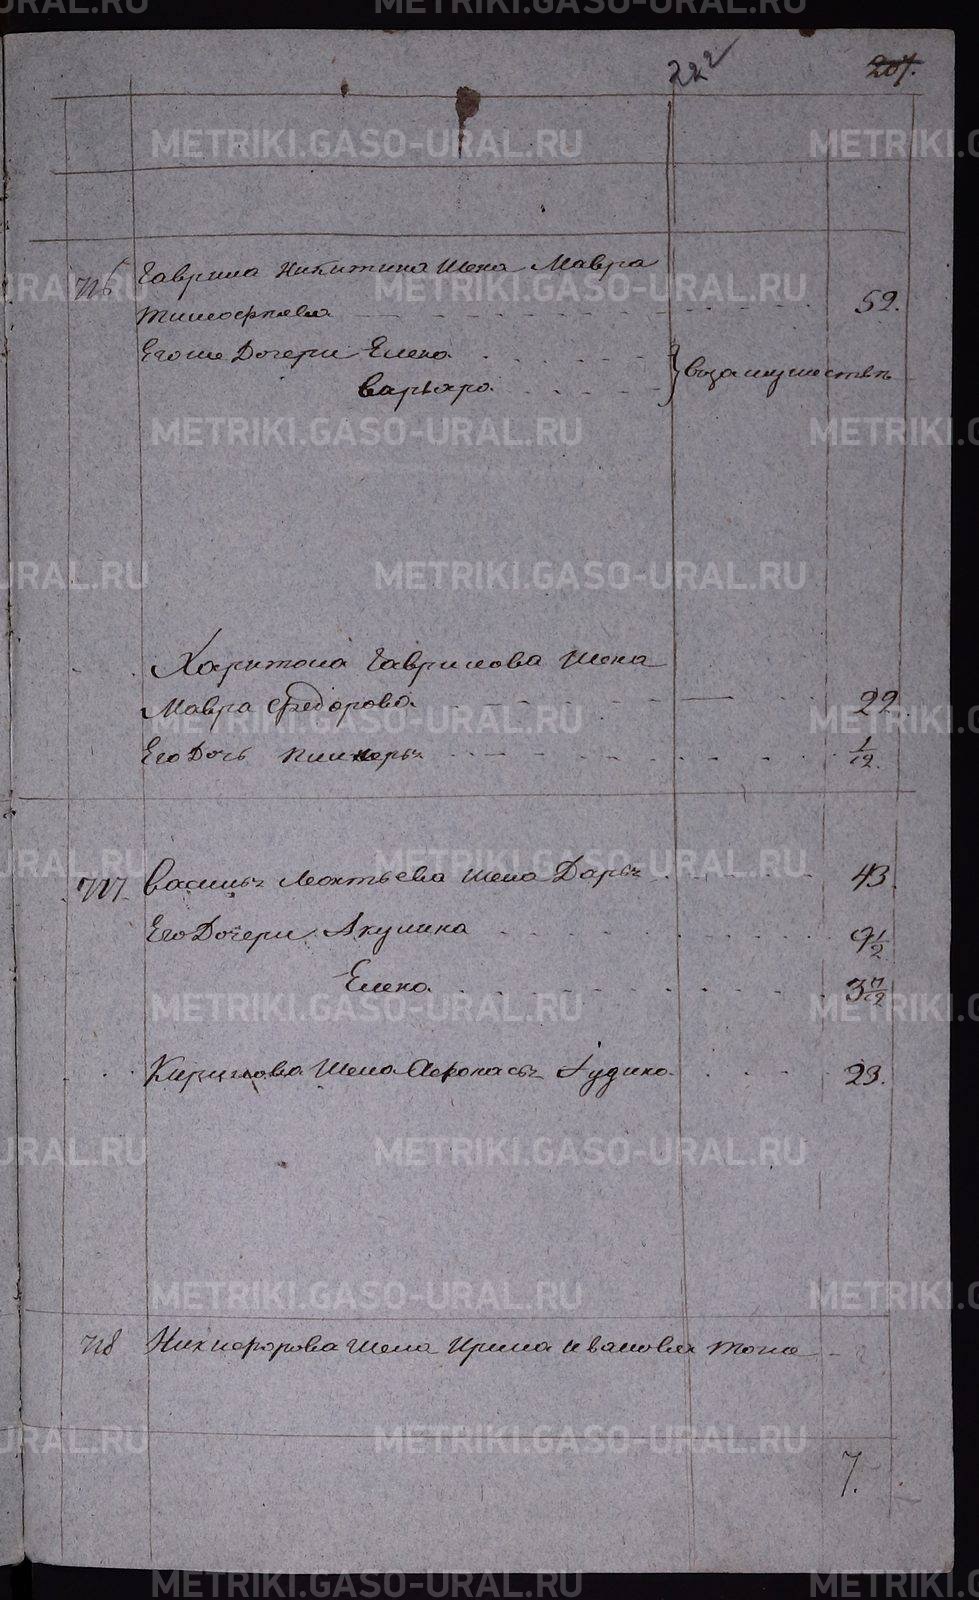 222 207.
716 Гаврила Никитина жена Мавра
Тимофеева 52.
Егоже Дочери Елена
Варвара взамужестве
Харитона Гаврилова жена
Мавра Федорова 22.
Его Дочь 1/12.
717. Василья Леонтьева жена Дарья 43.
Его Дочери Акулина 9 1/2
Елена
Кирилова жена Афонасья 23.
718 Никифорова жена Ирина Иванова тоже
7.
METRIKI.GASO-URAL.RU